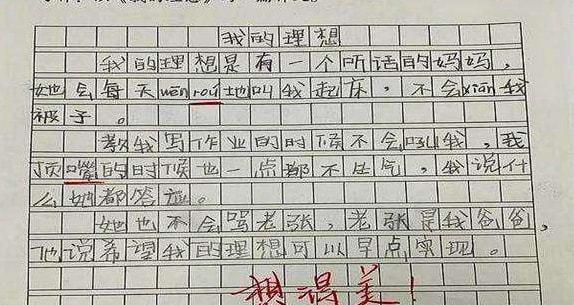 我的理想
我的理想是有一个听话的妈妈，
她会每天wēn rоú地叫我起床，不会xiān我
被子。
教我写作业的时候不会吼我，我
顶嘴的时候也一点都不生气，我说什
么她都答应。
她也不会骂老张，老张是我爸爸，
他说希望我的理想可以早点实现。
想得美！